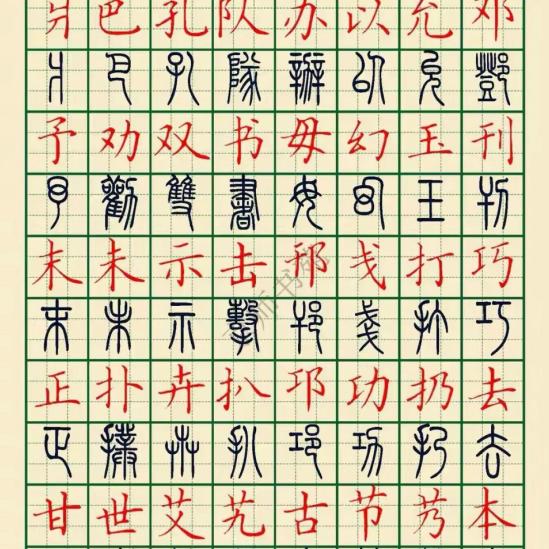 爿巴孔队办以允邓
爿巴孔隊辦以允鄧
予劝双书毋幻玉刊
予勸雙書毋幻玉刊
末未示击邗戋打巧
末未示擊邗戔打巧
正扑卉扒邛功扔去
正撲卉扒邛功扔去
甘世艾艽古节艿本